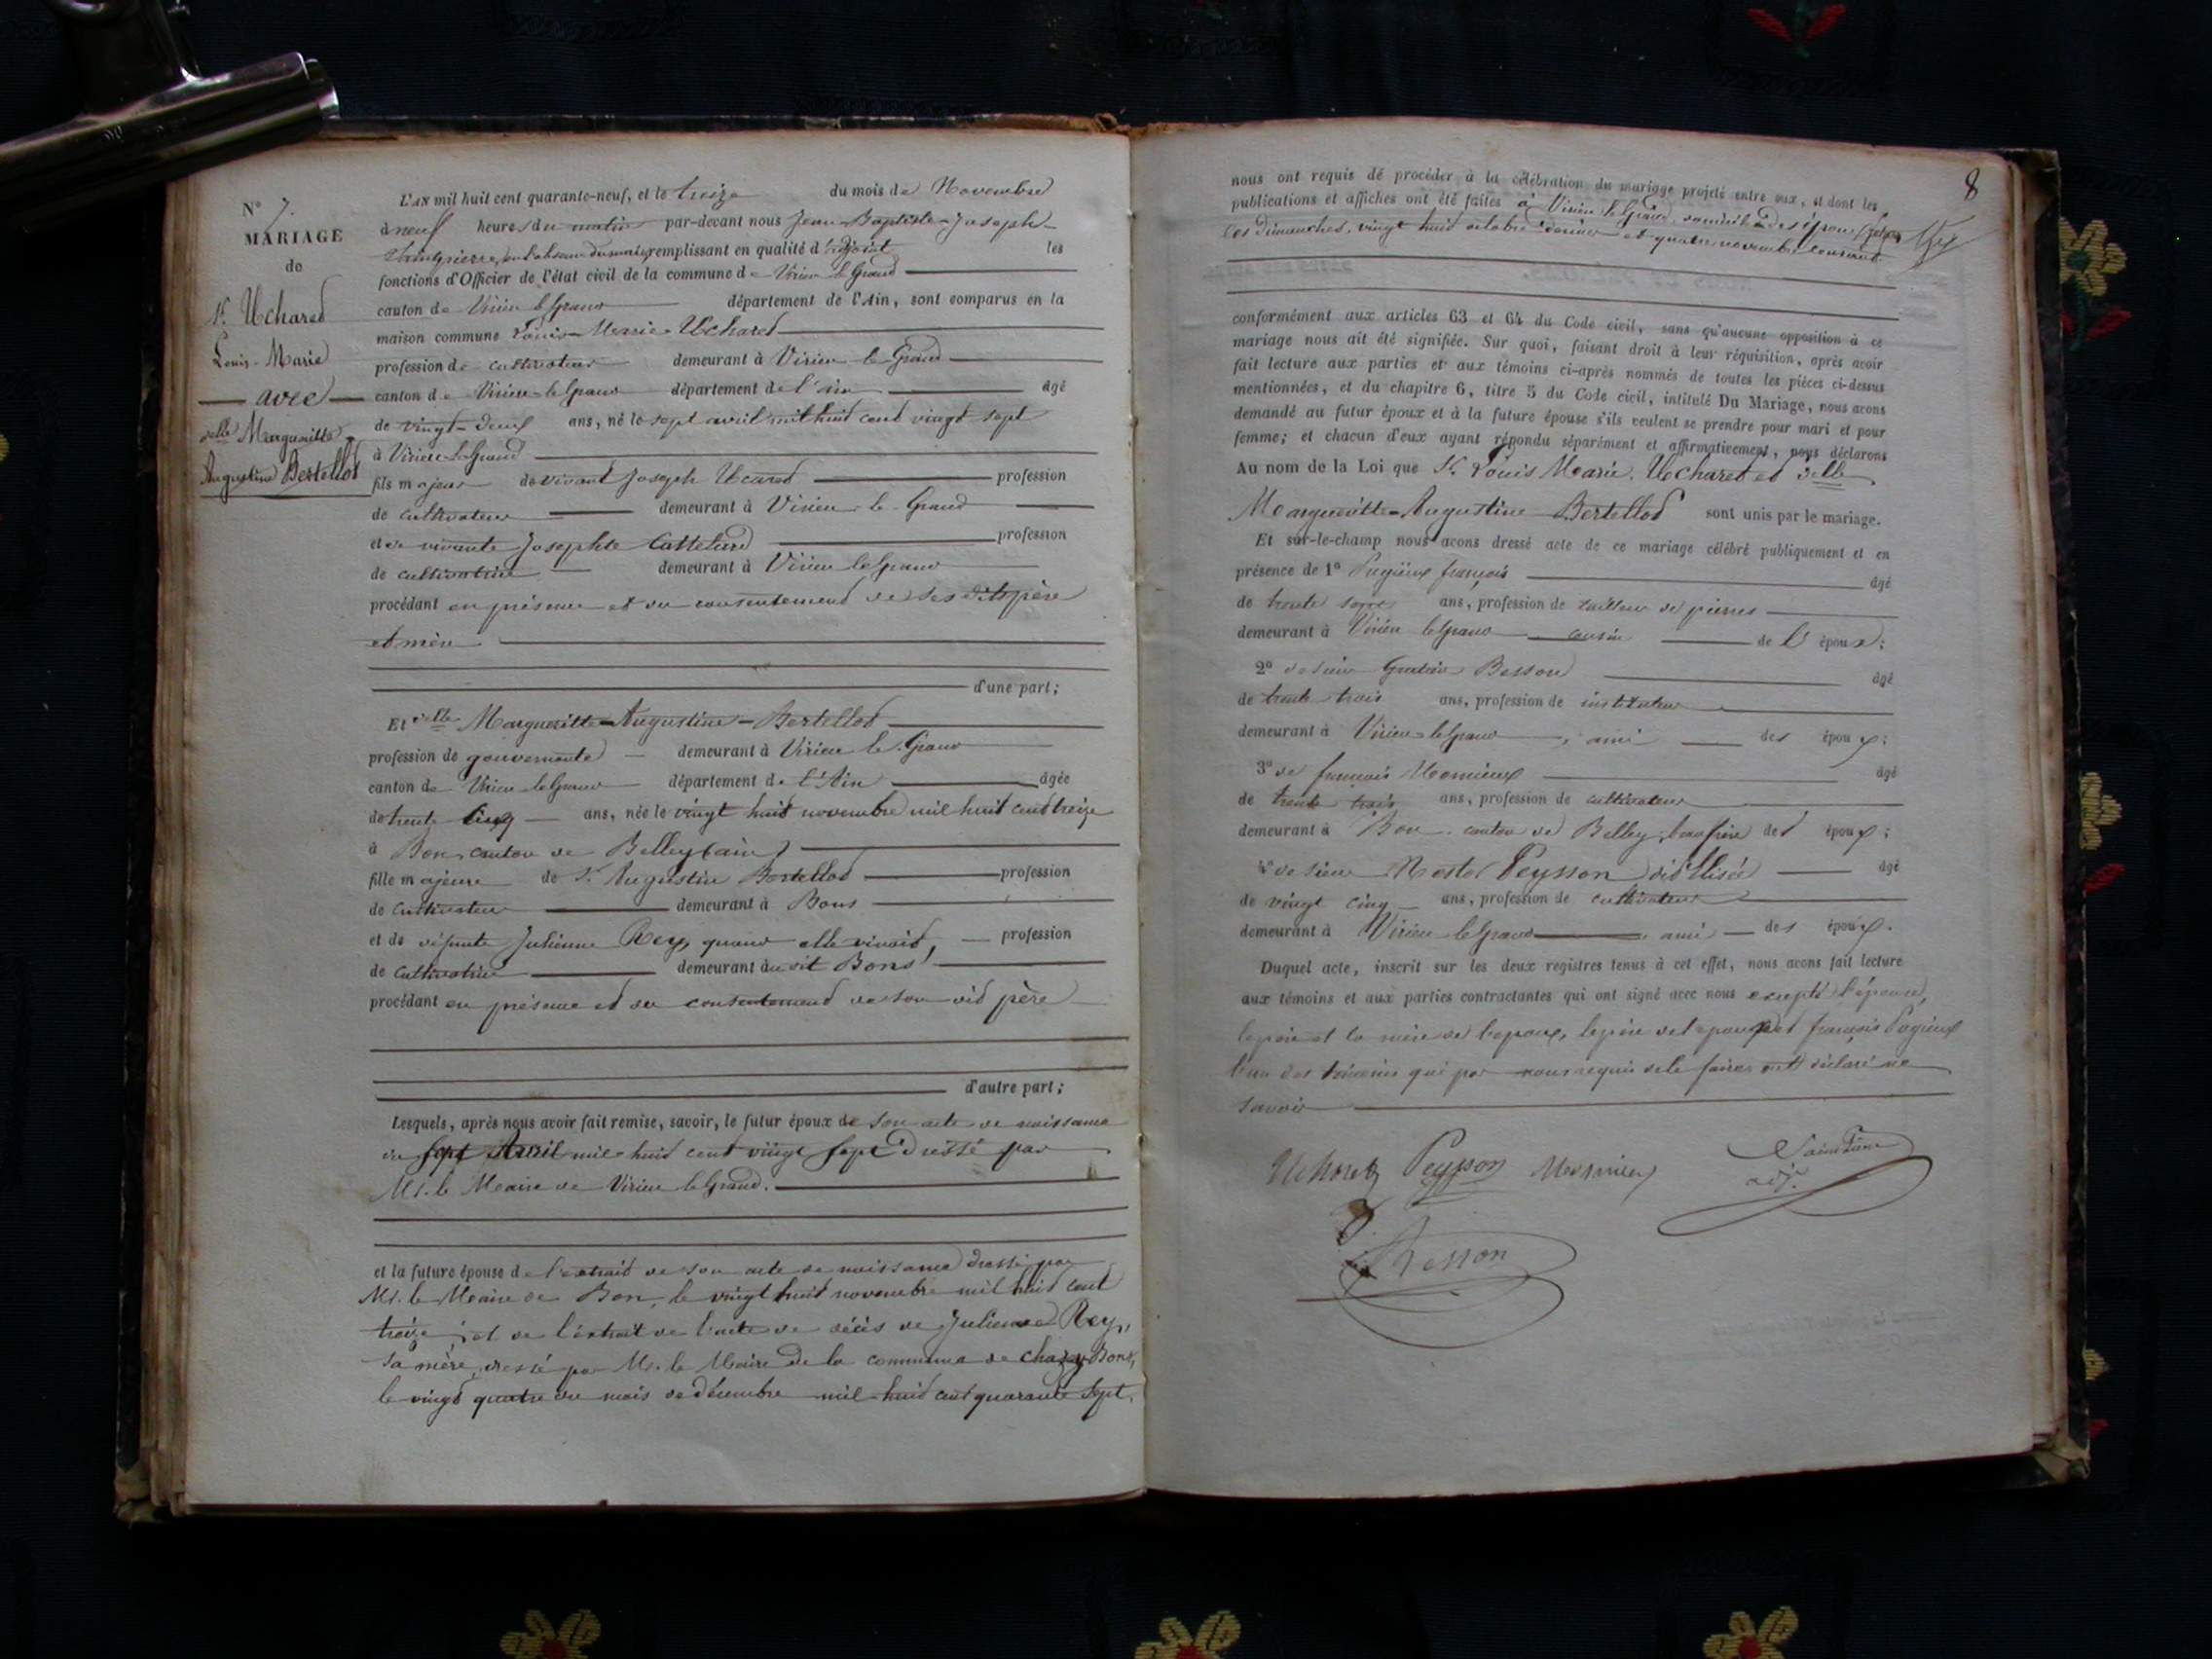 N° 7.
MARIAGE
de
Sr. Uchard
Louis-Marie
avec
delle Margueritte
Augustine Bertellod
L'AN mil huit cent quarante-neuf, et le treize du mois de Novembre
à neuf heures du matin par-devant nous Jean-Baptiste-Joseph-
en l'absence du maire, remplissant en qualité d'adjoint les
fonctions d'Officier de l'état civil de la commune de Virieu le Grand
canton de Virieu le Grand département de l'Ain, sont comparus en la
maison commune Louis-Marie Uchard
profession de cultivateur demeurant à Virieu le Grand
canton de Virieu-le Grand département de l'ain âgé
de vingt-deux ans, né le sept avril mil huit cent vingt sept
à Virieu le Grand
fils majeur de vivant Joseph Ucard profession
de cultivateur demeurant à Virieu-le-Grand
et de vivante Josephte profession
de cultivatrice demeurant à Virieu le Grand
procédant en présence et du consentement de ses dits père
et mère
d'une part;
Et delle Margueritte-Augustine-Bertellod
profession de gouvernante demeurant à Virieu le Grand
canton de Virieu le Grand département de l'Ain âgée
de trente cinq ans, née le vingt huit novembre mil huit cent treize
à Bon, canton de Belley (ain)
fille majeure de Sr. Augustin Bertellod profession
de cultivateur demeurant à Bons
et de défunte Julienne Rey, quand elle vivait, profession
de cultivatrice demeurant audit Bons
procédant en présence et du consentement de son dit père
d'autre part;
Lesquels, après nous avoir fait remise, savoir, le futur époux de son acte de naissance
du sept Avril mil huit cent vingt sept dressé par
Mr. le Maire de Virieu le Grand.
et la future épouse de l'extrait de son acte de naissance dressé par
Mr. le Maire de Bon, le vingt huit novembre mil huit cent
treize; et de l'extrait de l'acte de décès de Julienne Rey,
sa mère, dressé par Mr. le Maire de la commune de Chazey Bons,
le vingt quatre du mois de décembre mil huit cent quarante sept.
8
nous ont requis de procéder à la célébration du mariage projeté entre eux, et dont les
publications et affiches ont été faites à Virieu le Grand, domicile des époux
les dimanches, vingt huit octobre dernier et quatre novembre courant
conformément aux articles 63 et 64 du Code civil, sans qu'aucune opposition à ce
mariage nous ait été signifiée. Sur quoi, faisant droit à leur réquisition, après avoir
fait lecture aux parties et aux témoins ci-après nommés de toutes les pièces ci-dessus
mentionnées, et du chapitre 6, titre 5 du Code civil, intitulé Du Mariage, nous avons
demandé au futur époux et à la future épouse s'ils veulent se prendre pour mari et pour
femme; et chacun d'eux ayant répondu séparément et affirmativement, nous déclarons
Au nom de la Loi que Sr. Louis Marie. Uchard et delle
Margueritte-Augustine Bertellod sont unis par le mariage.
Et sur-le-champ nous avons dressé acte de ce mariage célébré publiquement et en
présence de 1° Pugieux françois âgé
de trente ans, profession de tailleur de pierres
demeurant à Virieu le Grand cousin de l' époux;
2° de sieur Besson âgé
de trente trois ans, profession de instituteur
demeurant à Virieu-le Grand, ami des époux;
3° de françois âgé
de trente trois ans, profession de cultivateur
demeurant à Bon. canton de Belley, beau frère des époux;
4° de sieur Peysson dit Elisée âgé
de vingt cinq ans, profession de cultivateur
demeurant à Virieu le Grand ami des époux.
Duquel acte, inscrit sur les deux registres tenus à cet effet, nous avons fait lecture
aux témoins et aux parties contractantes qui ont signé avec nous excepté l'épouse,
le père et la mère de l'époux, le père de l'épouse et françois Pugieux
l'un des témoins qui par nous requis de le faire ont déclaré ne
savoir
Peysson
adj.
Besson